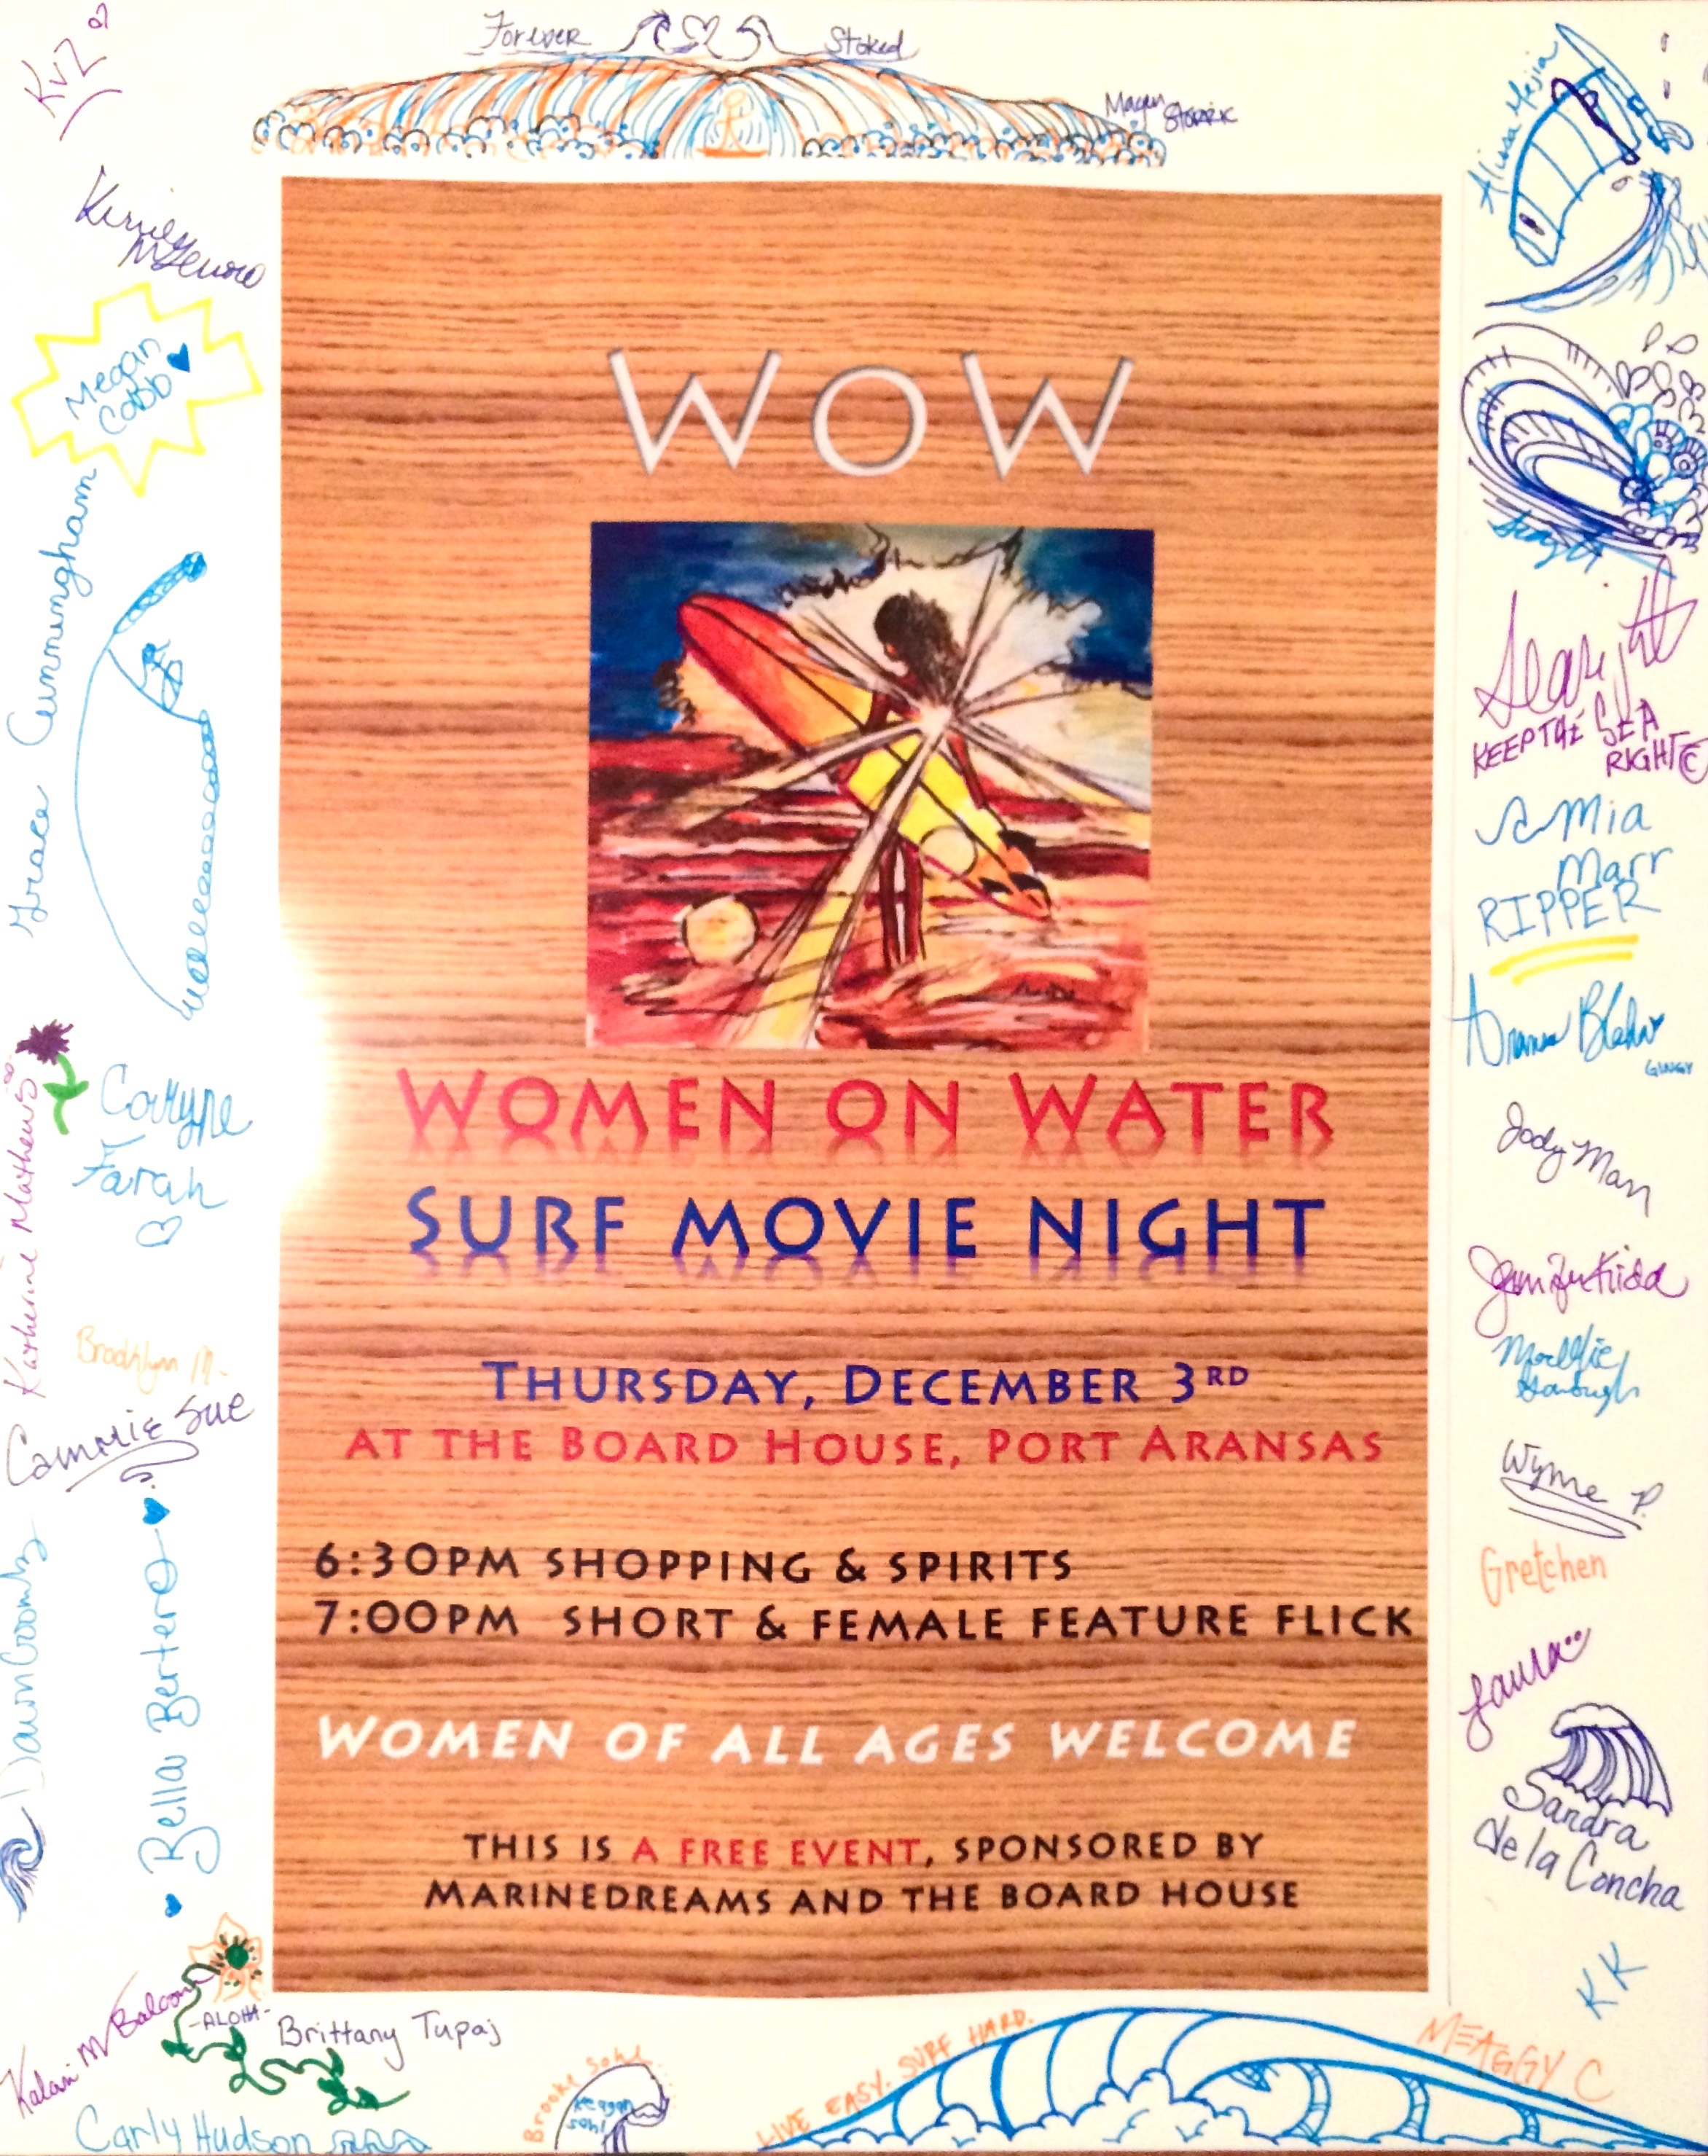 Forever Stoked
KVZ
Megan
Cobb
Grace Cunningham
Katherine Mathews
Farah
Brooklynn M.
Cammie Sue
Bella Bertero
Kalani M
-ALOHA-
Brittany Tupaj
Carly Hudson
WOW
WOMEN ON WATER
SURF MOVIE NIGHT
THURSDAY, DECEMBER 3RD
AT THE BOARD HOUSE, PORT ARANSAS
6:30PM SHOPPING & SPIRITS
7:00PM SHORT & FEMALE FEATURE FLICK
WOMEN OF ALL AGES WELCOME
THIS IS A FREE EVENT, SPONSORED BY
MARINEDREAMS AND THE BOARD HOUSE
Alissa Mejia
Searight
KEEP THE SEA
RIGHT©
Mia
Marr
RIPPER
GINGY
Jody Marr
Jennifer Kidd
Wynne P.
Gretchen
Laura
Sandra
de la Concha
KK
Brooke Sohl
Keagan
Sohl
LIVE EASY. SURF HARD.
MEAGGY C